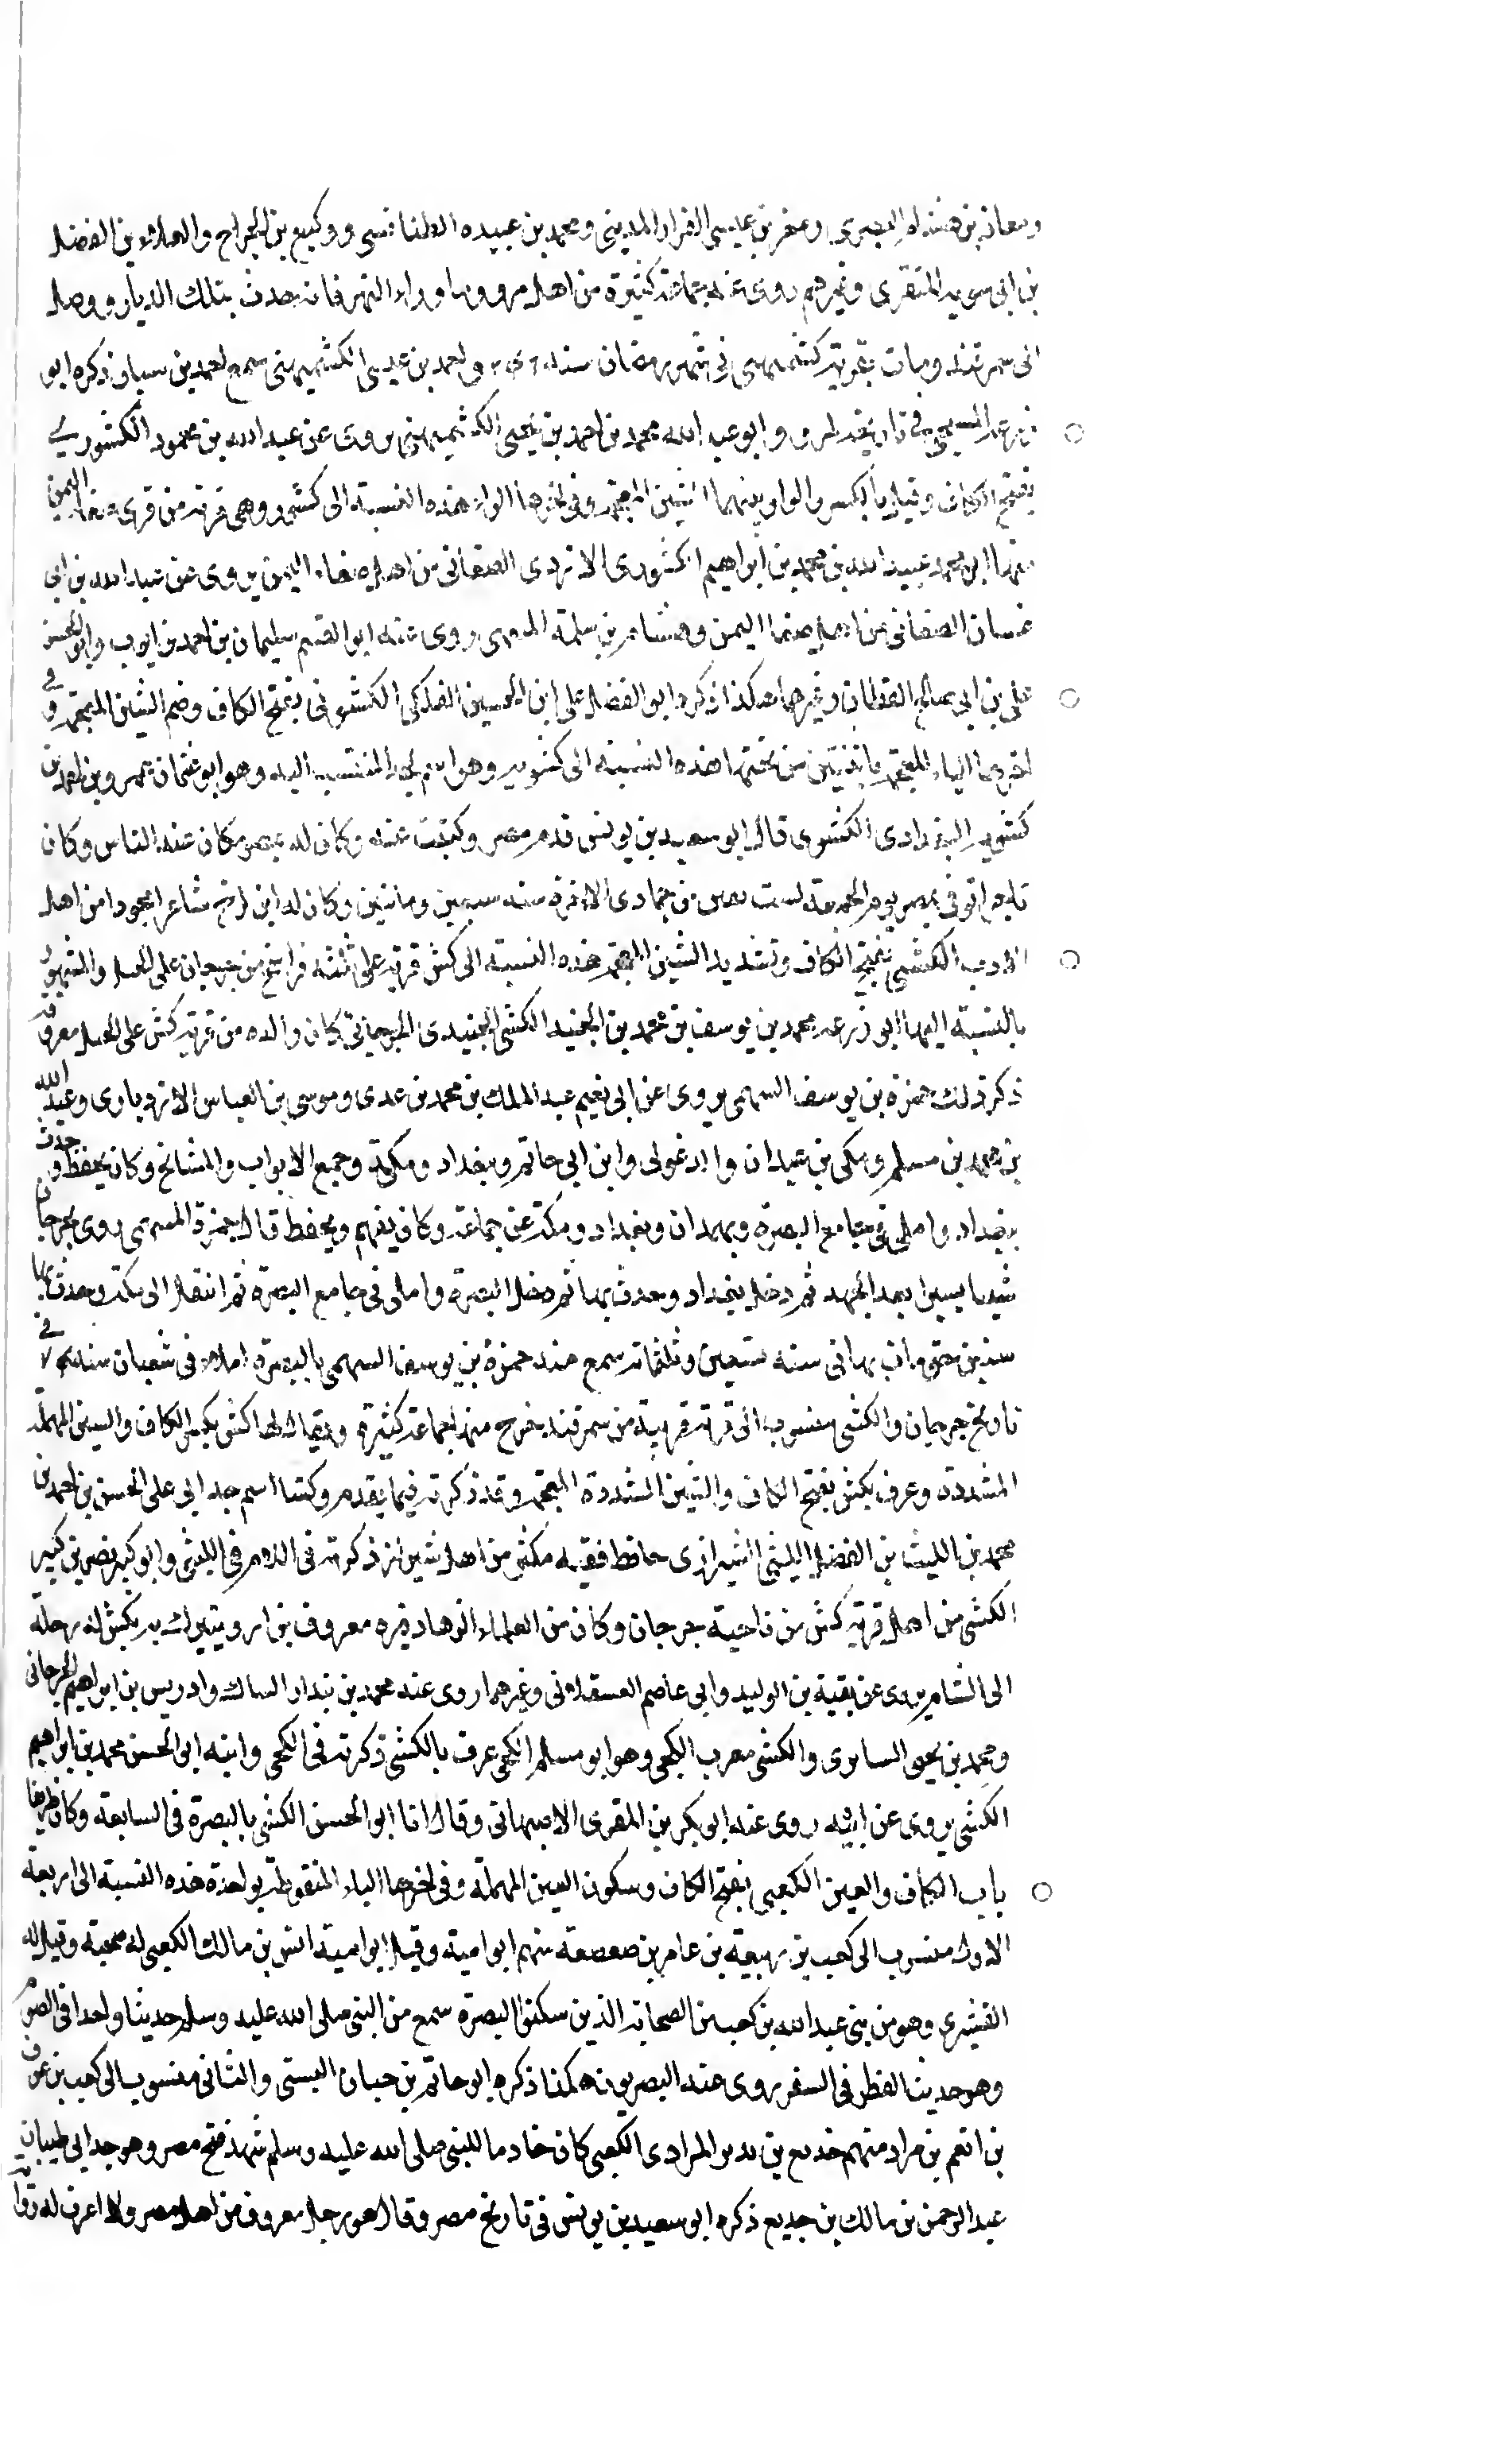 ومعاذ بن هشام البصرى ومعن بن عيسى القزاز المدينى ومحمد بن عبيده الطنافسى ووكيع بن الجراح والعلاء بن الفضل
بن ابى سويد المنقرى وغيرهم روى عنه جماعة كثيرة من اهل مرو وما وراء النهر فانه حدث بتلك الديار ووصل
الى سمرقند ومات بقرية كشميهن فى شهر رمضان سنه واحمد بن عيسى الكشميهنى سمع احمد بن سيار ذكره ابو
زرعه السبحى فى تاريخه لمرو وابو عبد الله محمد بن احمد بن يحيى الكشميهنى يروى عن عبد الله بن محمود الكشورى
بفتح الكاف وقيل بالكسر والواو بينهما الشين المعجمه وفى اخرها الراء هذه النسبة الى كشور وهى قرية من قرى صنعا اليمن
منها ابو محمد عبيد الله بن محمد بن ابراهيم الكشورى الازدى الصنعانى من اهل صنعاء اليمن يروى عن عبد الله بن ابى
غسان الصنعانى من اهل صنعا اليمن وهشام بن سلمة المهرى روى عنه ابو القسم سليمان بن احمد بن ايوب وابو الحسن
على بن ابى صالح القطان وغيرهما هكذا ذكره ابو الفضل على ابن الحسين الفلكى الكشوى بفتح الكاف وضم الشين المعجمه وفى
اخرها الياء المعجمه باثنتين من تحتها هذه النسبة الى كشويه وهو اسم لجد المنتسب اليه وهو ابو عثمان عمرو بن احمد بن
كشويه البغدادى الكشوى قال ابو سعيد بن يونس قدم مصر وكتبت عنه وكان له بمصر مكان عند الناس وكان
تاجرا توفى بمصر يوم الجمعة لست بقين من جمادى الاخرة سنه سبعين ومائتين وكان له ابن شاعرا مجودا من اهل
الادب الكشى بفتح الكاف وتشديد الشين المعجمه هذه النسبة الى كش قرية على ثلثه فراسخ من جرجان على الجبل والمشهور
بالنسبة اليها ابو زرعه محمد بن يوسف بن محمد بن الجنيد الكشى الجنيدى الجرجانى كان والده من قرية كش على الجبل معروفة
ذكر ذلك حمزة بن يوسف السهمى يروى عن ابى نعيم عبد الملك بن محمد بن عدى وموسى بن العباس الازدباوى وعبد الله
بن محمد بن مسلم ومكى بن عبدان والدغولى وابن ابى حاتم وببغداد ومكة وجمع الابواب والمشايخ وكان يحفظ وحدث
ببغداد واملى فى جامع البصرة وبهمدان وبغداد ومكة عن جماعة وكان يفهم ويحفظ قال حمزة السهمى روى بجرجان
شيئا يسيرا بعد الجهد ثم دخل بغداد وحدث بها ثم دخل البصرة واملى فى جامع البصرة ثم انتقل الى مكة وحدث بها
سنين حتى مات بها فى سنه تسعين وثلثمائه سمع منه حمزة بن يوسف السهمى بالبصرة املاء فى شعبان سنه فى
تاريخ جرجان والكشى منسوب الى قرية قريبة من سمرقند يخرج منها جماعة كثيرة ويقال لها اكش بكسر الكاف والسين المهملة
المشددة وعرف بكش بفتح الكاف والشين المشددة المعجمه وقد ذكرته فيما يقدم وكشا اسم جد ابى على الحسن بن احمد بن
محمد بن الليث بن الفضل الليثى الشيرازى حافظ فقيه مكثر من اهل شيراز ذكرته فى اللام فى الليثى وابو كثير نصر بن كثير
الكشى من اهل قرية كش من ناحية جرجان وكان من العلماء الزهاد قبره معروف بن ار ويتبرك به بكش له رحلة
الى الشام يروى عن بقية بن الوليد وابى عاصم العسقلانى وغيرهما روى عنه محمد بن بندار السباك وادريس بن ابراهيم الجرجانى
ومحمد بن يحيى السابرى والكشى معرب الكجى وهو ابو مسلم الكجى عرف بالكشى ذكرته فى الكجى وابنه ابى الحسن محمد بن ابراهيم
الكشى يروى عن ابيه روى عنه ابو بكر بن المقرى الاصبهانى وقال انا ابو الحسن الكشى بالبصرة فى السابعة وكان ظريفا
باب الكاف والعين الكعبى بفتح الكاف وسكون العين المهملة وفى اخرها الباء المنقوطة بواحدة هذه النسبة الى اربعة
الاول منسوب الى كعب بن ربيعة بن عامر بن صعصعة منهم ابو امية وقيل ابو امية انس بن مالك الكعبى له صحبة وقيل له
القشيرى وهو من بنى عبد الله بن كعب من الصحابة الذين سكنوا البصرة سمع من النبى صلى الله عليه وسلم حديثا واحدا فى الصوم
وهو حديث الفطر فى السفر روى عنه البصريون هكذا ذكره ابو حاتم بن حبان البستى والثانى منسوب الى كعب بن عوف
بن انعم بن مراد منهم خديع بن بدير المرادى الكعبى كان خادما للنبى صلى الله عليه وسلم شهد فتح مصر وهو جد ابى ظبيان
عبد الرحمن بن مالك بن جديع ذكره ابو سعيد بن يونس فى تاريخ مصر وقال هو رجل معروف من اهل مصر ولا اعرف له رواية